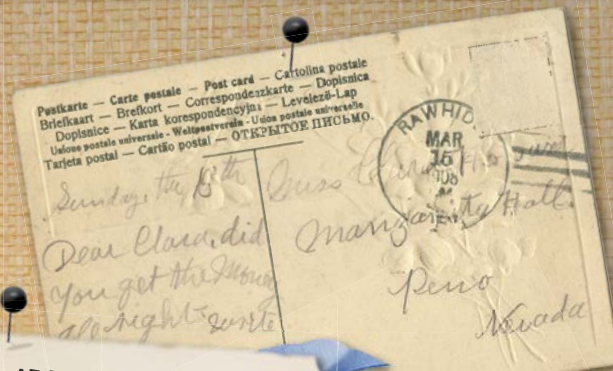 Postkarte — Carte postale — Post card — Cartolina postale
Briefkaart — Brefkort — Correspondenzkarte — Dopisnica
Dopisnice — Karta korespondencyjna — Levelező-Lap
Unione postale universale - Weltpostverein - Union postale universelle
Tarjeta postal — Cartão postal — ОТКРЫТОЕ ПИСЬМО.
RAWHID
MAR
Sunday, the
Dear Clara, did
you get the money
all right - write
Miss Clara
Manzanita Hall
Reno
Nevada